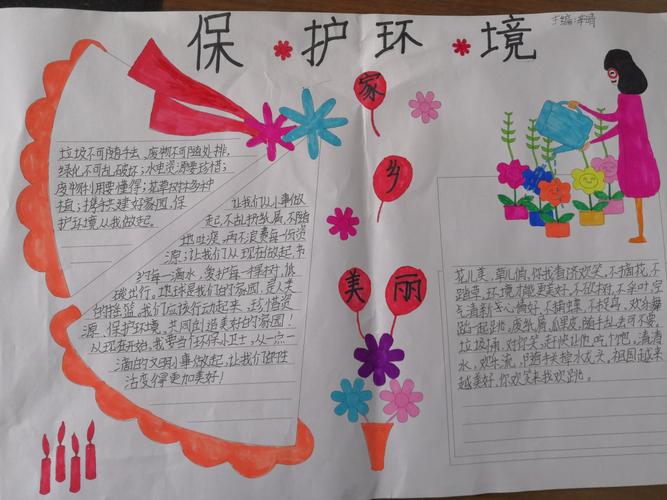 保护环境
主编:李晴
家乡美丽
垃圾不可随手丢,废物不可随处排,
绿化不可乱破坏;水电资源要珍惜;
废物利用要懂得;花草树木多种
植;携手共建好家园,保
护环境从我做起。
让我们从小事做
起,不乱扔纸屑、不随
地吐痰,再不浪费每一份资
源;让我们从现在做起,节
约每一滴水,爱护每一棵树,低
碳出行。地球是我们的家园,是人类
的摇篮,我们应该行动起来,珍惜资
源,保护环境,共同创造美好的家园!
从现在开始,我要当个环保小卫士,从一点一
滴的文明小事做起,让我们的生
活变得更加美好!
花儿美,草儿俏,你我看济欢笑,不摘花,不
踏草,环境才能更美好,不砍树,不采叶,空
气清新了心情好,不捕蝶,不投鸟,欢和舞
蹈一起跳,废纸屑,瓜果皮,随手乱丢可不要,
垃圾桶,对你笑,赶快让他吃个饱,清清
水,欢乐流,随手关掉水龙头,祖国越来
越美好,你欢笑来我欢跳。